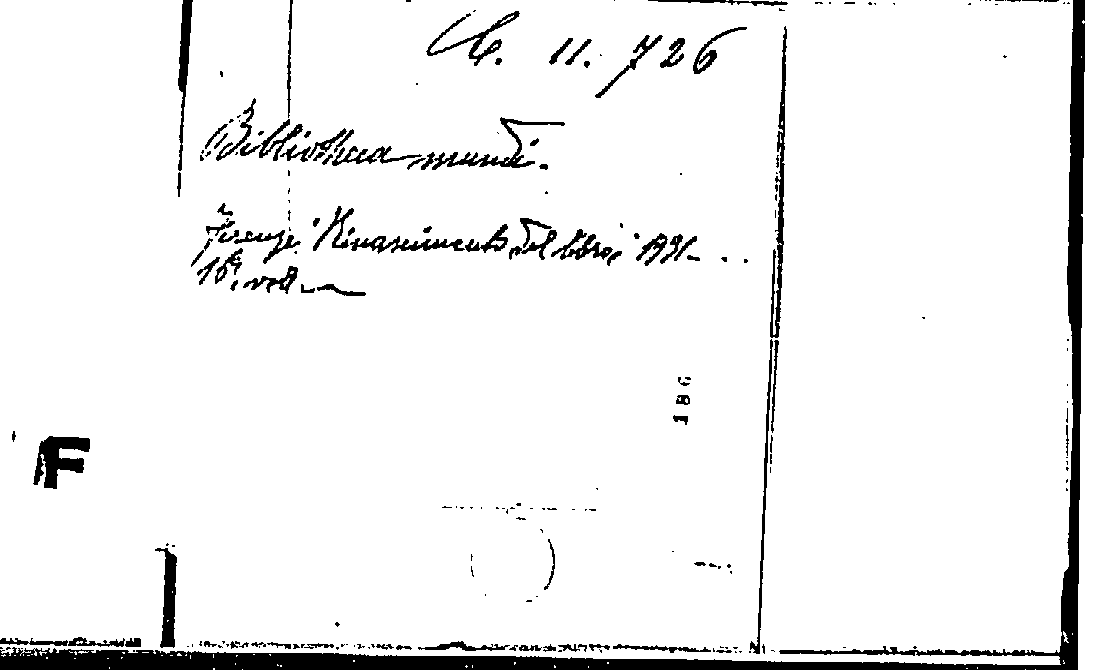 C. 11. 726
Bibliotheca mundi.
Firenze, Rinascimento del libro, 1931- ...
16°, voll. —
186
F